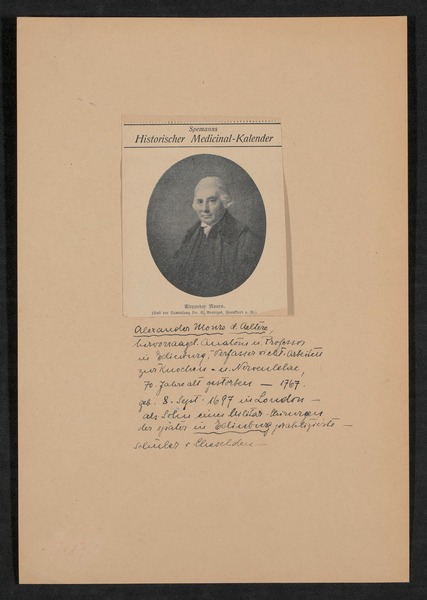 Spemanns
Historischer Medicinal-Kalender
Alexander Monro.
(Aus der Sammlung Dr. Frankfurt a. M.)
Alexander Monro d. Aeltere,
hervorragdt. Anatom u. Professor
in Edinburg, Verfasser Arbeiten
zur Knochen- u. Nervenlehre,
70 Jahre alt gestorben — 1767.
geb. 8. Sept. 1697 in London —
als Sohn eines Militär-Chirurgen
der später in Edinburg praktizierte —
Schüler v Cheselden —